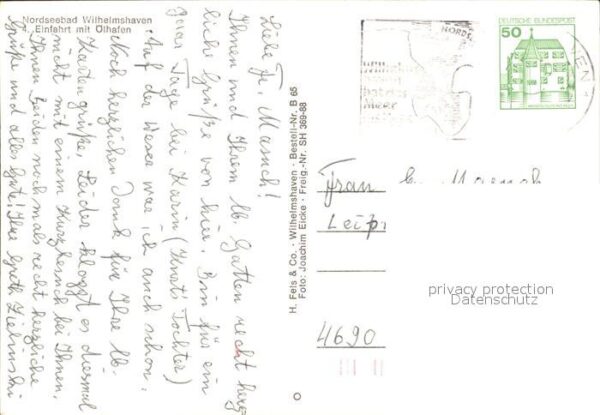 Nordseebad Wilhelmshaven
Einfahrt mit Ölhafen
Liebe Fr. Masuch!
Ihnen und Ihrem lb. Gatten recht herz
liche Grüße von hier. Bin für ein
paar Tage bei Karin (Horsts Tochter)
Auf der Weser war ich auch schon.
Noch herzlichen Dank für Ihre lb.
Kartengrüße. Leider klappt es diesmal
nicht mit einem Kurzbesuch bei Ihnen.
Ihnen Beiden nochmals recht herzliche
Grüße und alles Gute! Ihre Gerth. Zielinski
H. Feis & Co. · Wilhelmshaven · Bestell-Nr. B 65
Foto: Joachim Eicke · Freig.-Nr. SH 369-88
NORDS
hat das
Meer
DEUTSCHE BUNDESPOST
50
Frau
Leip
4690
privacy protection
Datenschutz